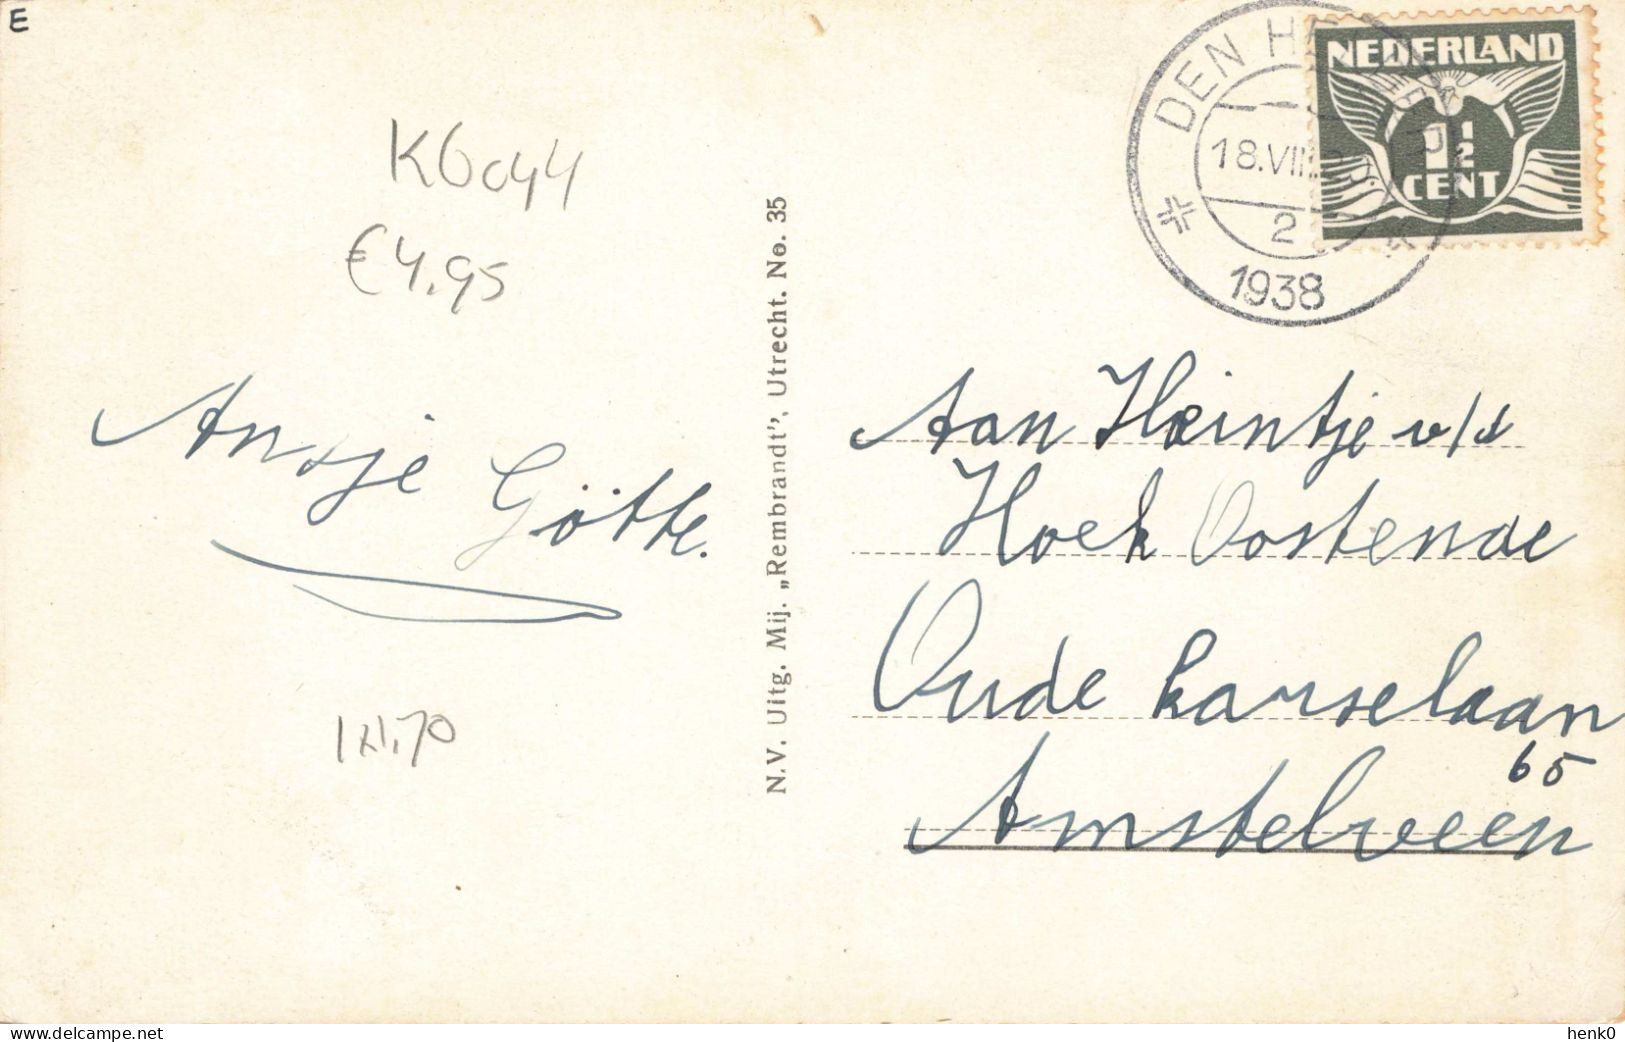 E
K6044
€4,95
Ansje Götte.
1x1,70
N.V. Uitg. Mij. „Rembrandt", Utrecht. No. 35
DEN H
18.VII
2
4
1938
NEDERLAND
1½
CENT
Aan Heintje v/d
Hoek Oostende
Oude karselaan
65
Amstelveen
henk0